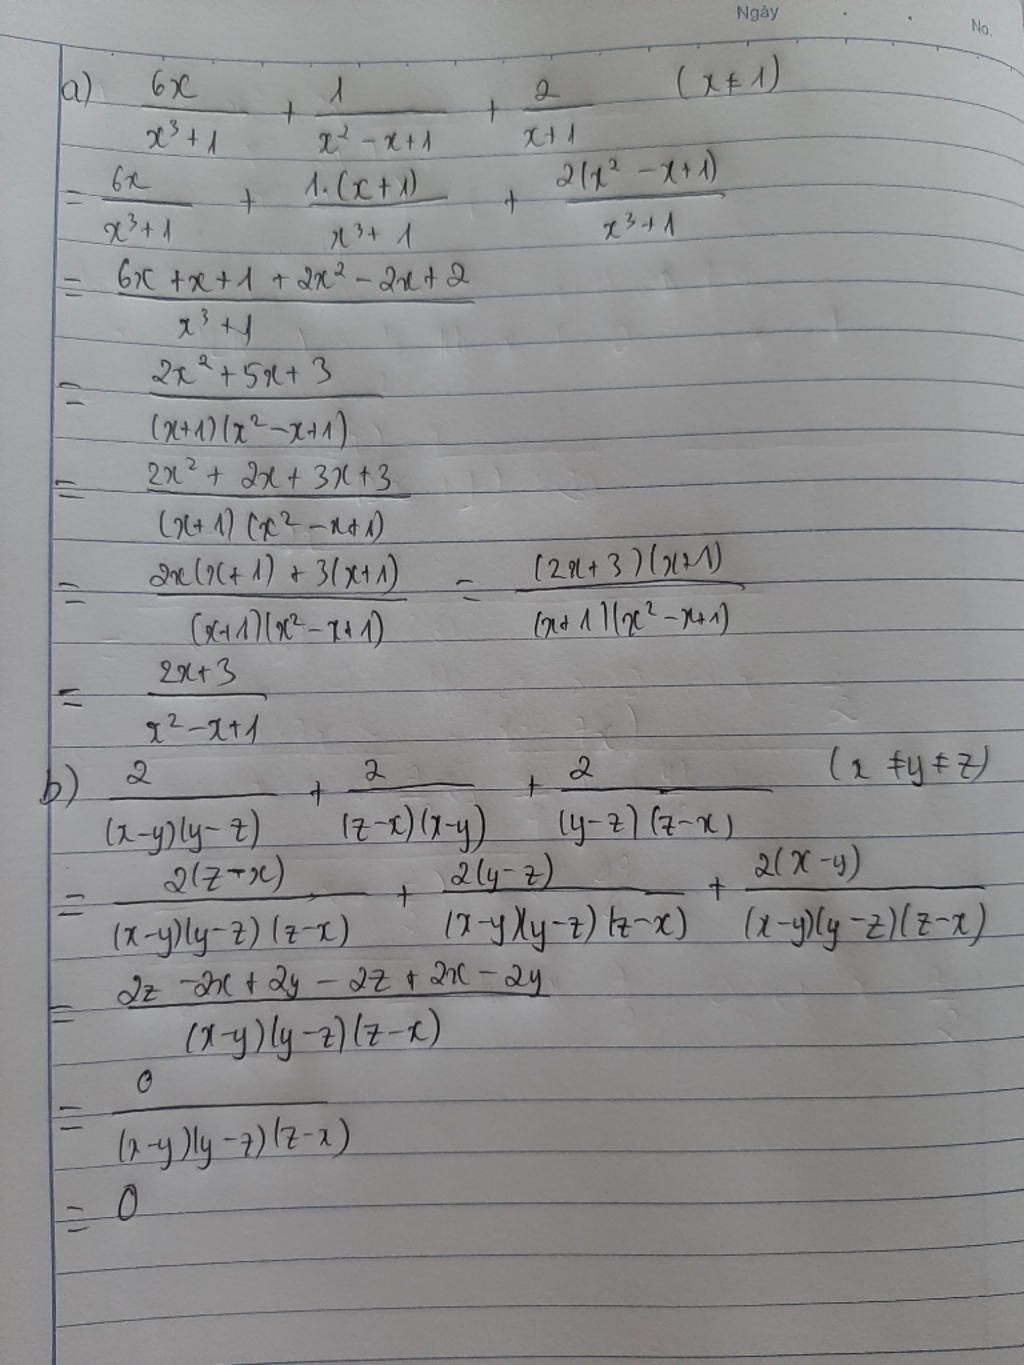 Ngày
No.
a) 6x/(x³+1) + 1/(x²-x+1) + 2/(x+1) (x ≠ 1)
= 6x/(x³+1) + 1.(x+1)/(x³+1) + 2(x²-x+1)/(x³+1)
= (6x+x+1+2x²-2x+2)/(x³+1)
= (2x²+5x+3)/((x+1)(x²-x+1))
= (2x²+2x+3x+3)/((x+1)(x²-x+1))
= (2x(x+1)+3(x+1))/((x+1)(x²-x+1)) = ((2x+3)(x+1))/((x+1)(x²-x+1))
= (2x+3)/(x²-x+1)
b) 2/((x-y)(y-z)) + 2/((z-x)(x-y)) + 2/((y-z)(z-x)) (x ≠ y ≠ z)
= 2(z-x)/((x-y)(y-z)(z-x)) + 2(y-z)/((x-y)(y-z)(z-x)) + 2(x-y)/((x-y)(y-z)(z-x))
= (2z-2x+2y-2z+2x-2y)/((x-y)(y-z)(z-x))
= 0/((x-y)(y-z)(z-x))
= 0